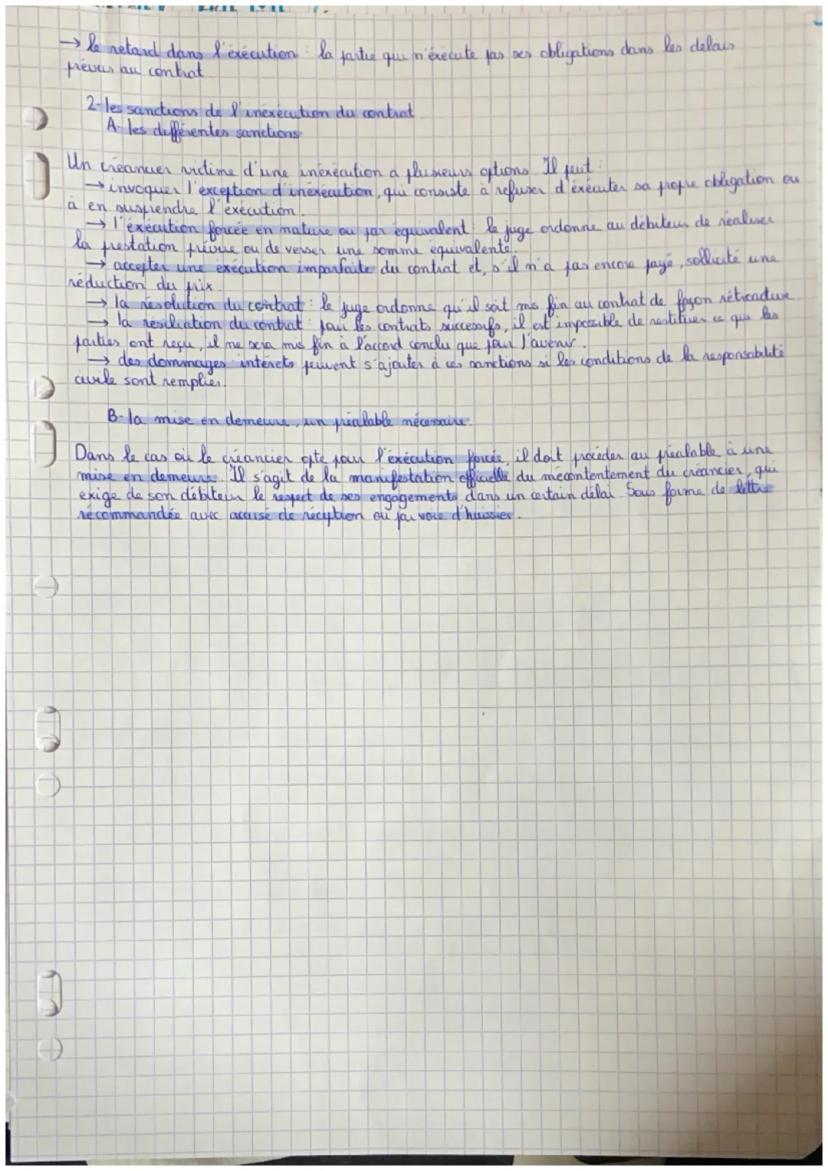 → le retard dans l'exécution : la partie qui n'éxécute pas ses obligations dans les délais
prévus au contrat
2- les sanctions de l'inexécution du contrat
A- les différentes sanctions
Un créancier victime d'une inéxécution a plusieurs options. Il peut :
→ invoquer l'exception d'inéxécution, qui consiste à refuser d'éxécuter sa propre obligation ou
à en suspendre l'exécution.
→ l'éxécution forcée en nature ou par équivalent : le juge ordonne au débiteur de réaliser
la prestation prévue ou de verser une somme équivalente.
→ accepter une éxécution imparfaite du contrat et, s'il n'a pas encore payé, sollicité une
réduction du prix.
→ la résolution du contrat : le juge ordonne qu'il soit mis fin au contrat de façon rétroactive.
→ la résiliation du contrat : pour les contrats successifs, il est impossible de restituer ce que les
parties ont reçu, il ne sera mis fin à l'accord conclu que pour l'avenir.
→ des dommages intérêts peuvent s'ajouter à ces sanctions si les conditions de la responsabilité
civile sont remplies.
B- la mise en demeure, un préalable nécessaire.
Dans le cas où le créancier opte pour l'exécution forcée, il doit procéder au préalable à une
mise en demeure. Il s'agit de la manifestation officielle du mécontentement du créancier, qui
exige de son débiteur le respect de ses engagements dans un certain délai. Sous forme de lettre
recommandée avec accusé de réception ou par voie d'huissier.